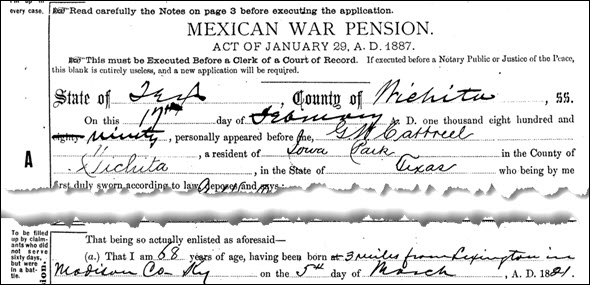 Fill up in every case.
Read carefully the Notes on page 3 before executing the application.
MEXICAN WAR PENSION.
ACT OF JANUARY 29, A. D. 1887.
This must be Executed Before a Clerk of a Court of Record. If executed before a Notary Public or Justice of the Peace,
this blank is entirely useless, and a new application will be required.
State of Texas, County of Wichita, ss.
On this 17th day of February A. D. one thousand eight hundred and
eighty ninety, personally appeared before me, G W Cattreel
A
Wichita, a resident of Iowa Park in the County of
, in the State of Texas who being by me
first duly sworn according to law, deposes and says:
To be filled up by claimants who did not serve sixty days, but were in a battle.
That being so actually enlisted as aforesaid—
(a.) That I am 68 years of age, having been born at 3 miles from Lexington in
Madison Co Ky on the 5th day of March, A. D. 1821.